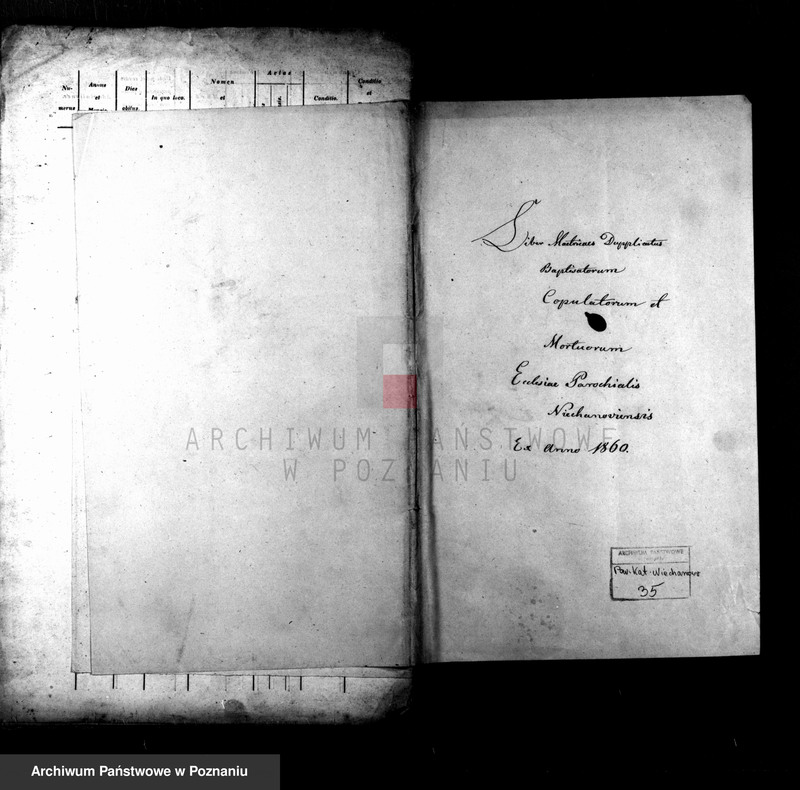 Nu-
merus
Annus
et
Mensis
Dies
obitus
In quo loco.
Nomen
et
Aetas
Conditio.
Conditio
et
Liber Matrices Dupplicatus
Baptisatorum
Copulatorum et
Mortuorum
Ecclesiae Parochialis
Niechanoviensis
Ex Anno 1860.
ARCHIWUM PAŃSTWOWE
W POZNANIU
ARCHIWUM PAŃSTWOWE
Par. Kat. Niechanowo
35
Archiwum Państwowe w Poznaniu